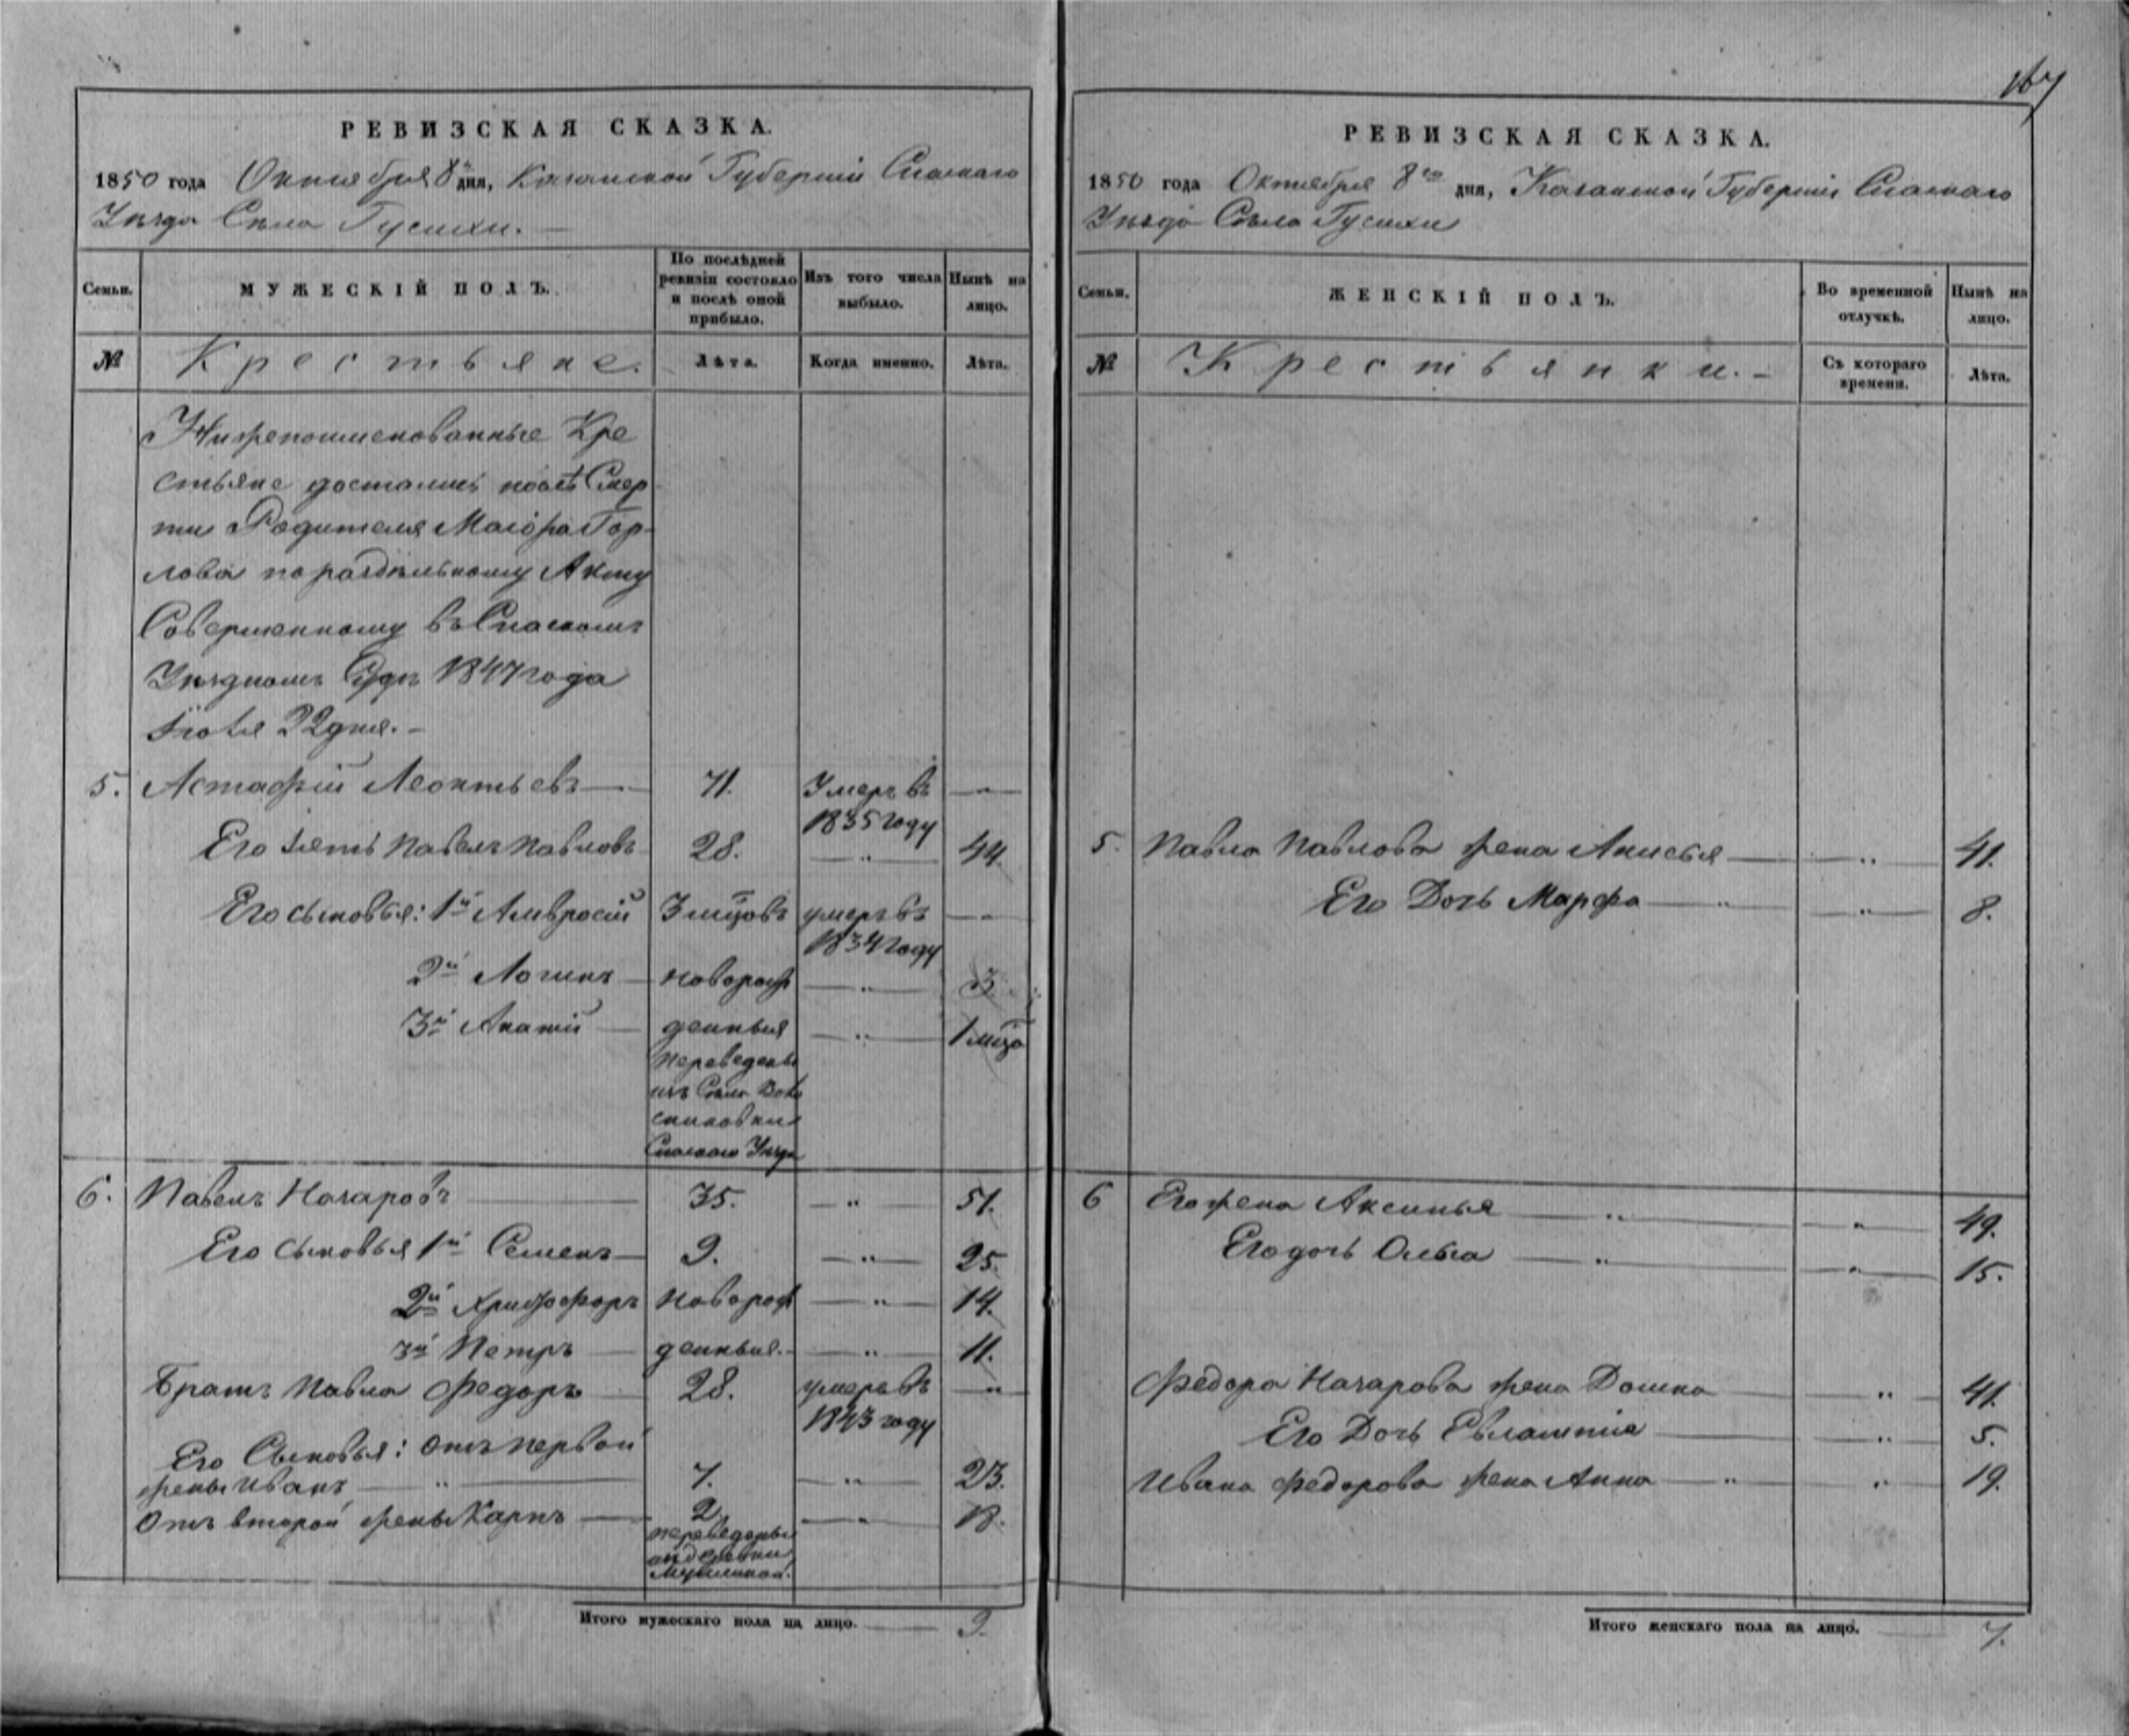 167
РЕВИЗСКАЯ СКАЗКА.
1850 года Октября 8го дня, Казанской Губернiи Спаскаго
Уѣзда Села Гусихи.
Семьи.
МУЖЕСКIЙ ПОЛЪ.
По послѣдней ревизiи состояло и послѣ оной прибыло.
Изъ того числа выбыло.
Нынѣ на лицо.
№
Крестьяне.
Лѣта.
Когда именно.
Лѣта.
Нижепоименованные Кре
стьяне достались послѣ Смер
ти Родителя Маiора Гор-
лова по раздѣльному Акту
Совершенному въ Спаскомъ
Уѣздномъ Судѣ 1847 года
22 дня.
5. Астафiй Леонтьевъ 71. Умеръ въ 1835 году
Его зять Павелъ Павловъ 28. " 44
Его сыновья: 1й Амвросiй 3 мцовъ умеръ въ 1834 году
2й Логинъ новорож " 3
3й Ипатiй денныя " 1 мца
переведены
изъ Села
Спаскаго Уѣзда
6. Павелъ Назаровъ 35. " 51.
Его Сыновья 1й Семенъ 9. " 25.
2й Христофоръ Новорож " 14.
3й Петръ денныя. " 11.
Братъ Павла Федоръ 28. умеръ въ 1843 году "
Его Сыновья: Отъ первой
жены Иванъ " 7. " 23.
Отъ второй жены Карпъ 2. " 18.
переведены
изъ деревни
Итого мужескаго пола на лицо. 9.
РЕВИЗСКАЯ СКАЗКА.
1850 года Октября 8го дня, Казанской Губернiи Спаскаго
Уѣзда Села Гусихи
Семьи.
ЖЕНСКIЙ ПОЛЪ.
Во временной отлучкѣ.
Нынѣ на лицо.
№
Крестьянки.
Съ котораго времени.
Лѣта.
5. Павла Павлова жена Анисья " 41.
Его Дочь Марфа " " 8.
6 Его жена Аксинья " " 49.
Его дочь Ольга " " 15.
Федора Назарова жена Домна " 41.
Его Дочь Евлампiя " 5.
Ивана Федорова жена Анна " " 19.
Итого женскаго пола на лицо. 7.